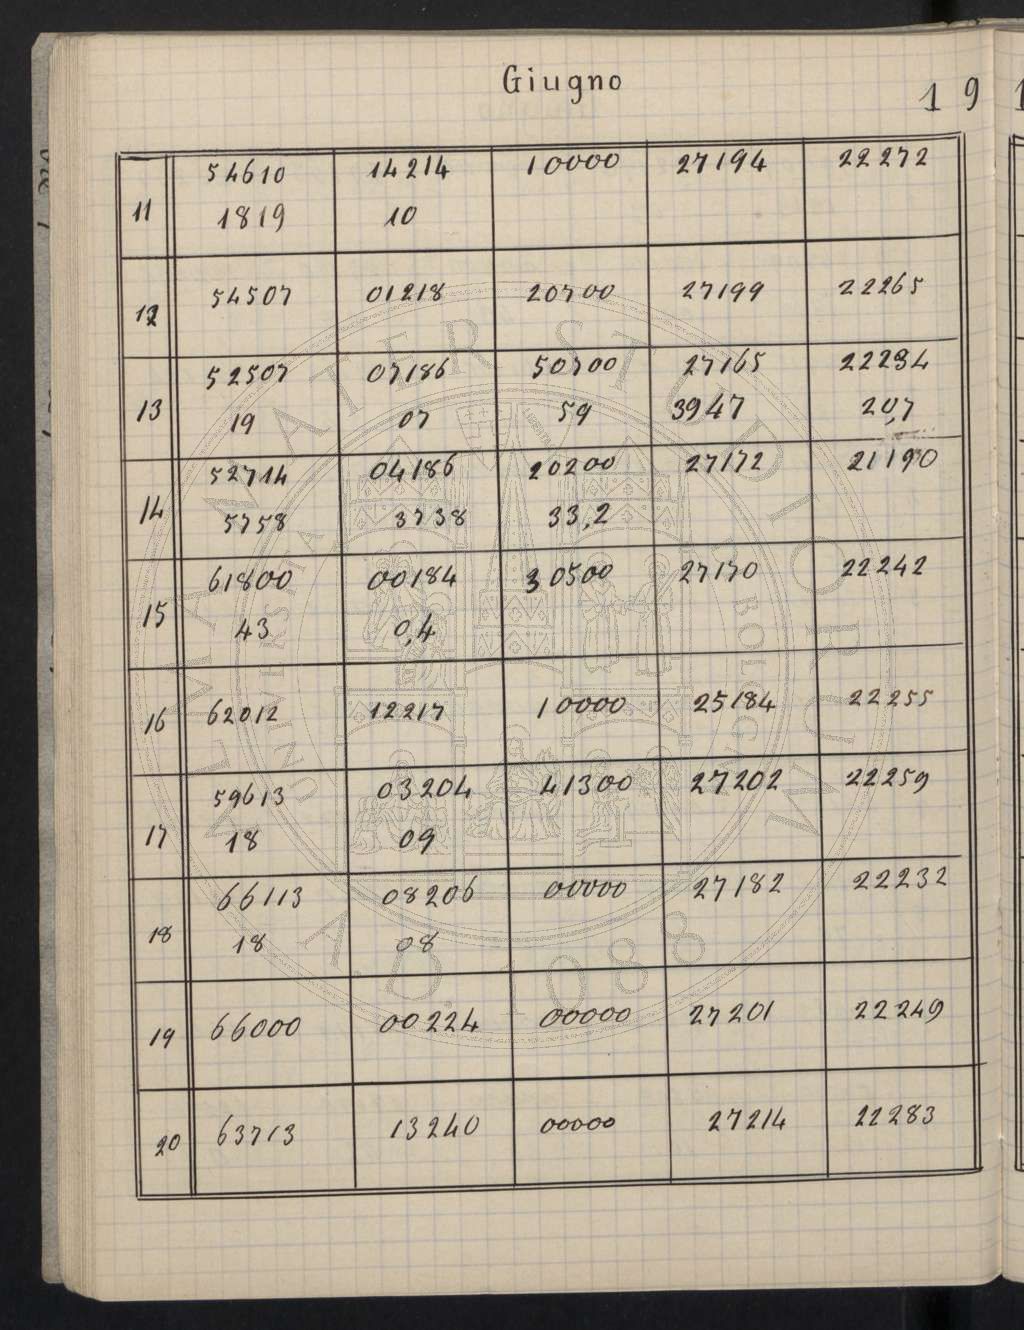 Giugno
19
11 54610 14214 10000 27194 22272
1819 10
12 54507 01218 20700 27199 22265
13 52507 07186 50700 27165 22234
19 07 59 3947 20,7
14 52714 04186 20200 27172 21190
5758 3738 33,2
15 61800 00184 30500 27170 22242
43 0,4
16 62012 12217 10000 25184 22255
17 59613 03204 41300 27202 22259
18 09
18 66113 08206 00000 27182 22232
18 08
19 66000 00224 00000 27201 22249
20 63713 13240 00000 27214 22283
ALMA MATER STUDIORUM
A.D. 1088